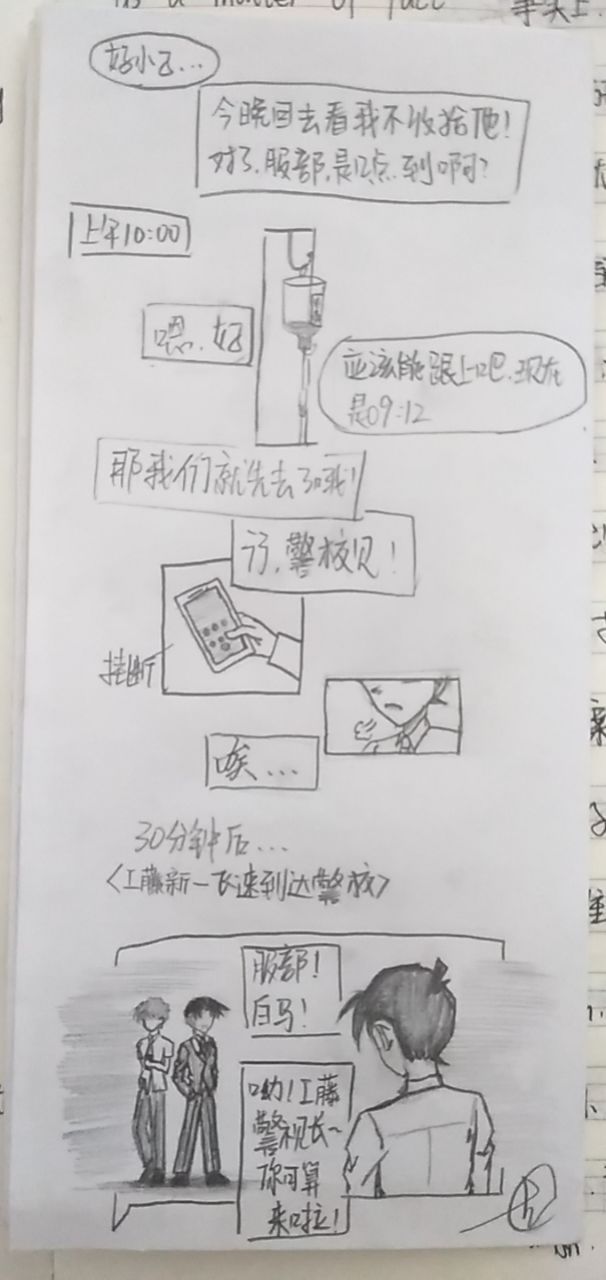 as a matter of fact
事实上
好小子...
今晚回去看我不收拾他！
对了，服部，是几点到啊？
上午10:00
嗯，好
应该能跟上吧，现在
是09:12
那我们就先去了哦！
行，警校见！
挂断
唉...
30分钟后...
〈工藤新一飞速到达警校〉
服部！
白马！
呦！工藤
警视长~
你可算
来啦！